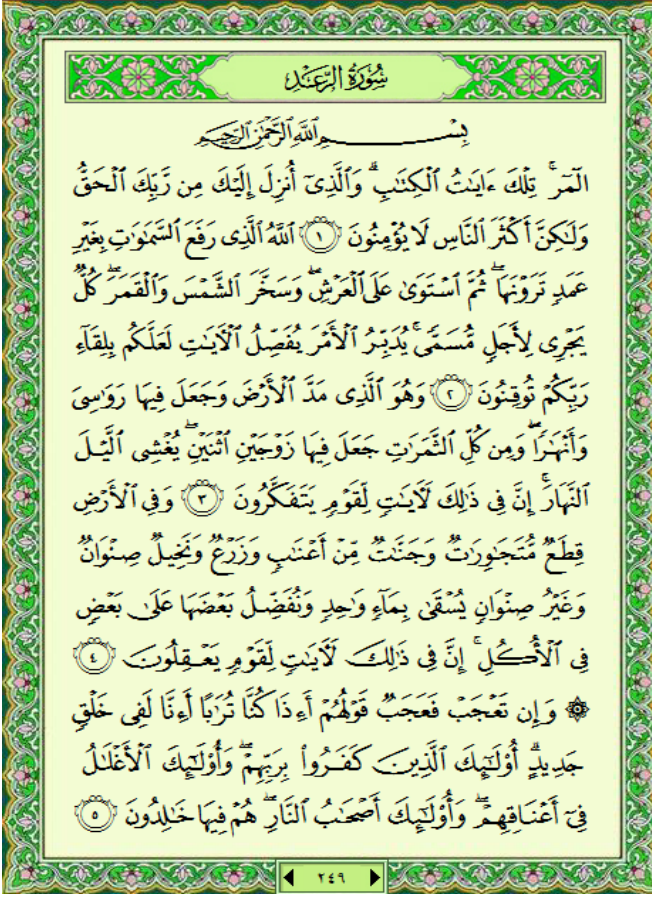 سُورَةُ الرَّعْدِ
بِسْمِ اللَّهِ الرَّحْمَٰنِ الرَّحِيمِ
الٓمٓرۚ تِلْكَ ءَايَٰتُ ٱلْكِتَٰبِۗ وَٱلَّذِىٓ أُنزِلَ إِلَيْكَ مِن رَّبِّكَ ٱلْحَقُّ
وَلَٰكِنَّ أَكْثَرَ ٱلنَّاسِ لَا يُؤْمِنُونَ ١ ٱللَّهُ ٱلَّذِى رَفَعَ ٱلسَّمَٰوَٰتِ بِغَيْرِ
عَمَدٍ تَرَوْنَهَاۖ ثُمَّ ٱسْتَوَىٰ عَلَى ٱلْعَرْشِۖ وَسَخَّرَ ٱلشَّمْسَ وَٱلْقَمَرَۖ كُلٌّ
يَجْرِى لِأَجَلٍ مُّسَمًّىۚ يُدَبِّرُ ٱلْأَمْرَ يُفَصِّلُ ٱلْءَايَٰتِ لَعَلَّكُم بِلِقَآءِ
رَبِّكُمْ تُوقِنُونَ ٢ وَهُوَ ٱلَّذِى مَدَّ ٱلْأَرْضَ وَجَعَلَ فِيهَا رَوَٰسِىَ
وَأَنْهَٰرًاۖ وَمِن كُلِّ ٱلثَّمَرَٰتِ جَعَلَ فِيهَا زَوْجَيْنِ ٱثْنَيْنِۖ يُغْشِى ٱلَّيْلَ
ٱلنَّهَارَۚ إِنَّ فِى ذَٰلِكَ لَءَايَٰتٍ لِّقَوْمٍ يَتَفَكَّرُونَ ٣ وَفِى ٱلْأَرْضِ
قِطَعٌ مُّتَجَٰوِرَٰتٌ وَجَنَّٰتٌ مِّنْ أَعْنَٰبٍ وَزَرْعٌ وَنَخِيلٌ صِنْوَانٌ
وَغَيْرُ صِنْوَانٍ يُسْقَىٰ بِمَآءٍ وَٰحِدٍ وَنُفَضِّلُ بَعْضَهَا عَلَىٰ بَعْضٍ
فِى ٱلْأُكُلِۚ إِنَّ فِى ذَٰلِكَ لَءَايَٰتٍ لِّقَوْمٍ يَعْقِلُونَ ٤
۞ وَإِن تَعْجَبْ فَعَجَبٌ قَوْلُهُمْ أَءِذَا كُنَّا تُرَٰبًا أَءِنَّا لَفِى خَلْقٍ
جَدِيدٍۗ أُو۟لَٰٓئِكَ ٱلَّذِينَ كَفَرُوا۟ بِرَبِّهِمْۖ وَأُو۟لَٰٓئِكَ ٱلْأَغْلَٰلُ
فِىٓ أَعْنَاقِهِمْۖ وَأُو۟لَٰٓئِكَ أَصْحَٰبُ ٱلنَّارِۖ هُمْ فِيهَا خَٰلِدُونَ ٥
٢٤٩